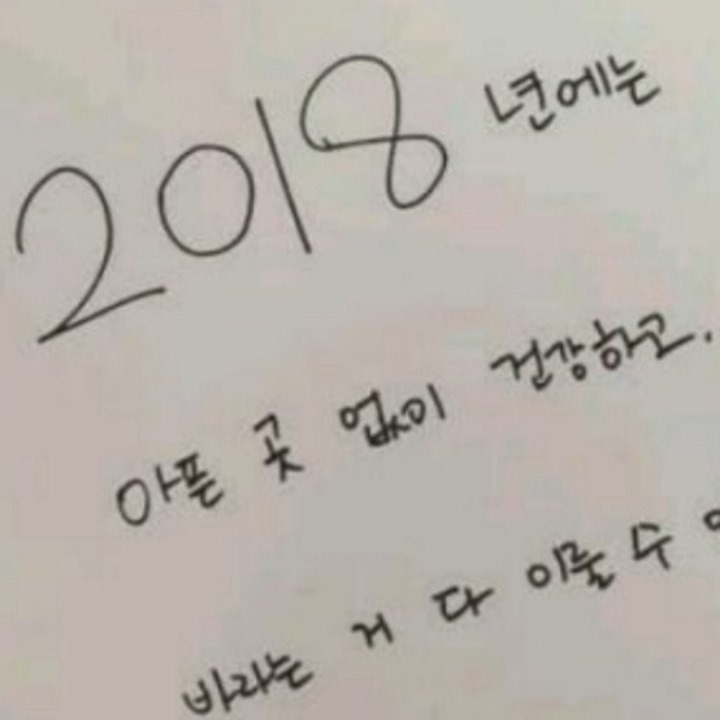 2018년에는
아픈 곳 없이 건강하고.
바라는 거 다 이룰 수